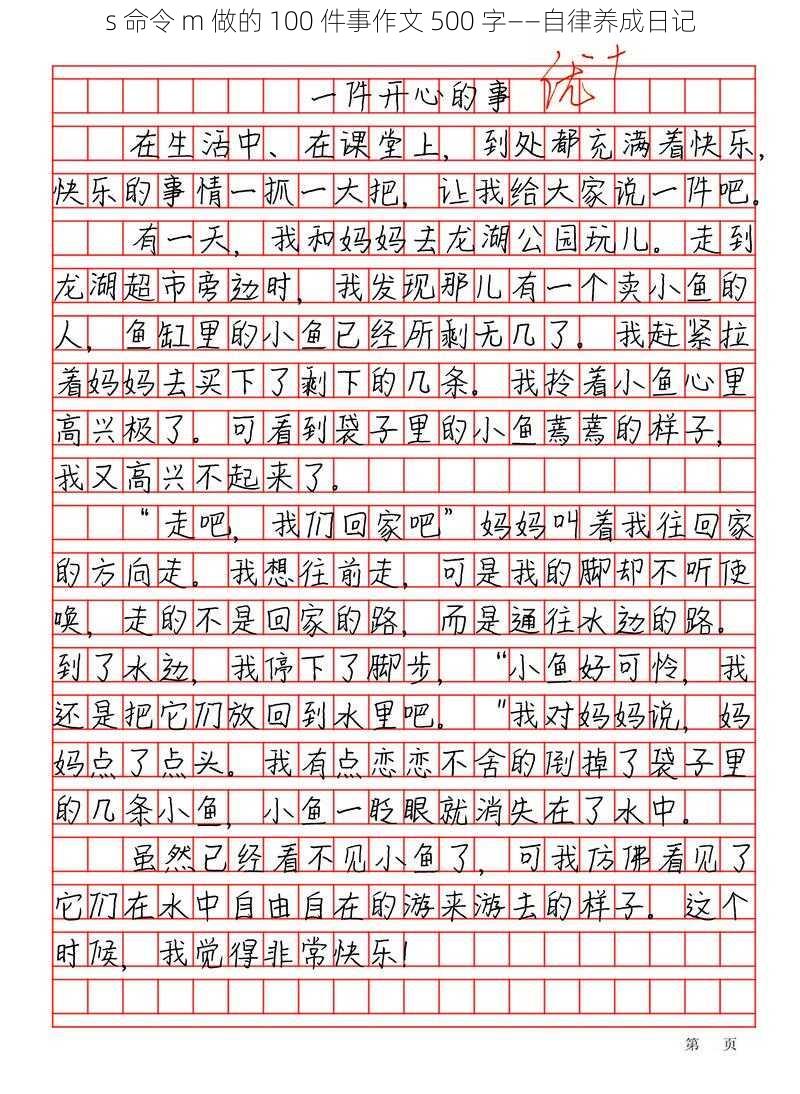 s 命令 m 做的 100 件事作文 500 字——自律养成日记
一件开心的事 优+
在生活中、在课堂上，到处都充满着快乐，
快乐的事情一抓一大把，让我给大家说一件吧。
有一天，我和妈妈去龙湖公园玩儿。走到
龙湖超市旁边时，我发现那儿有一个卖小鱼的
人，鱼缸里的小鱼已经所剩无几了。我赶紧拉
着妈妈去买下了剩下的几条。我拎着小鱼心里
高兴极了。可看到袋子里的小鱼蔫蔫的样子，
我又高兴不起来了。
“走吧，我们回家吧”妈妈叫着我往回家
的方向走。我想往前走，可是我的脚却不听使
唤，走的不是回家的路，而是通往水边的路。
到了水边，我停下了脚步，“小鱼好可怜，我
还是把它们放回到水里吧。”我对妈妈说，妈
妈点了点头。我有点恋恋不舍的倒掉了袋子里
的几条小鱼，小鱼一眨眼就消失在了水中。
虽然已经看不见小鱼了，可我仿佛看见了
它们在水中自由自在的游来游去的样子。这个
时候，我觉得非常快乐！
第 页